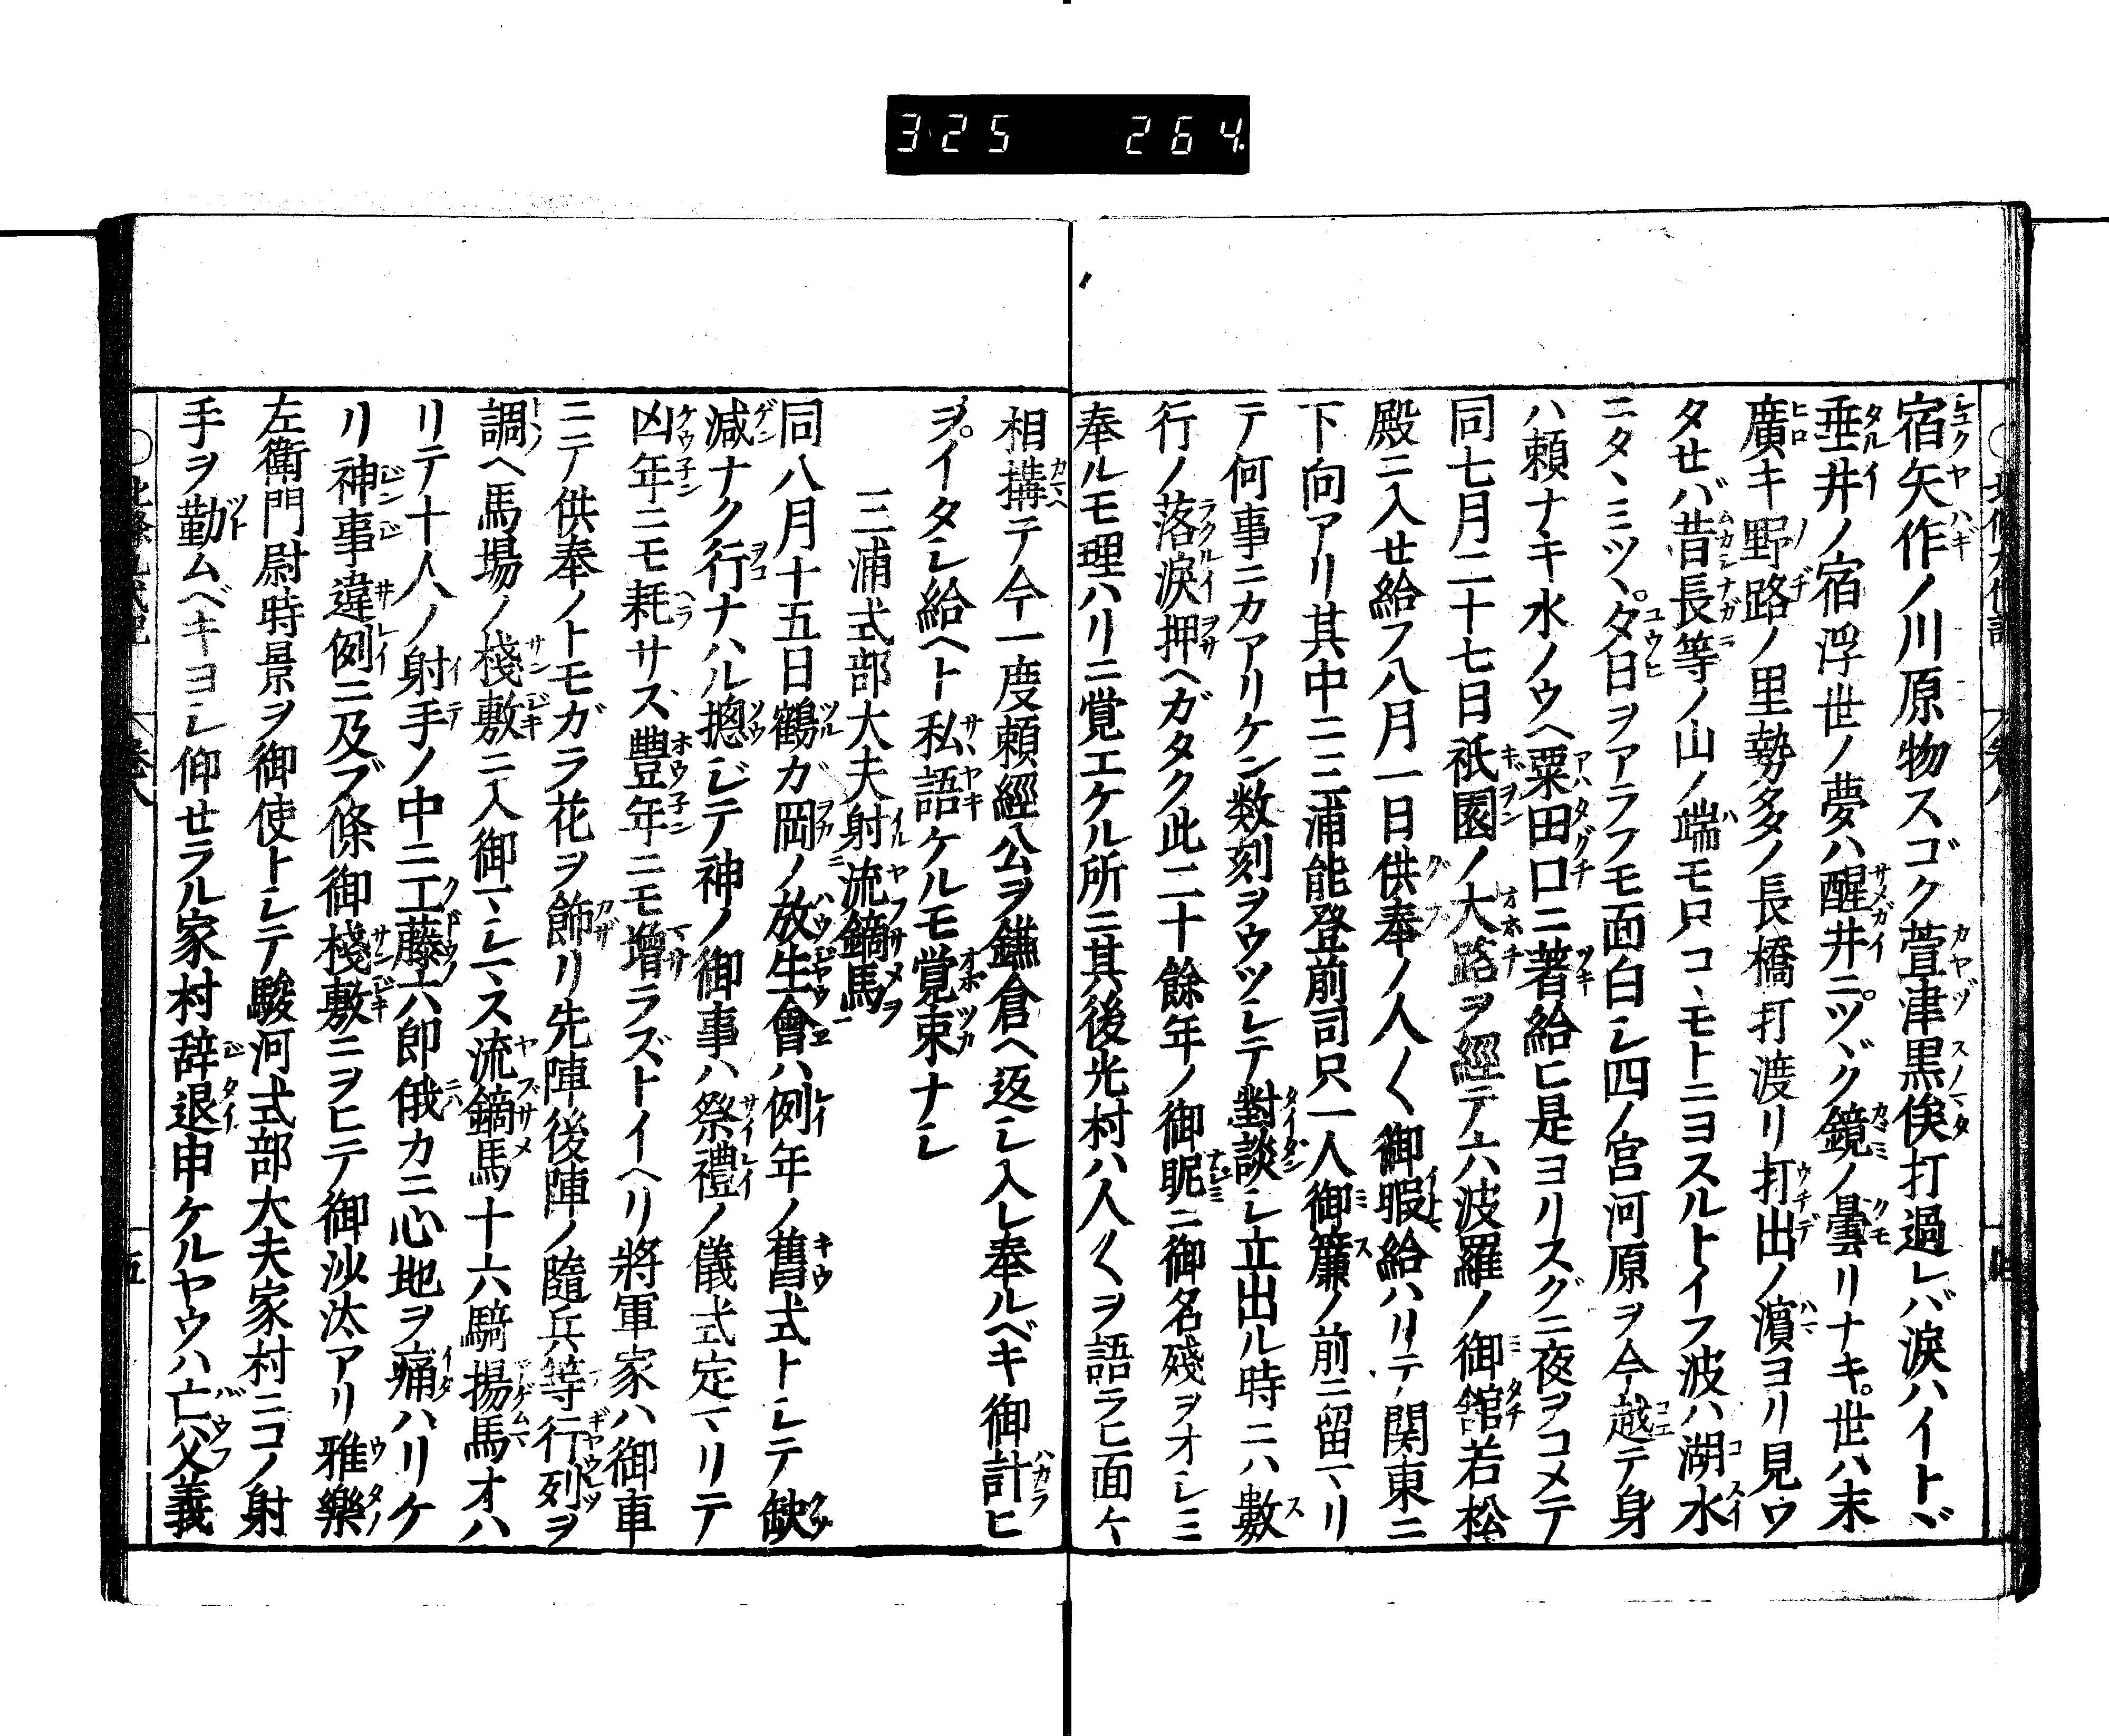 325 264
宿矢作ノ川原物スゴク萱津黒俣打過レバ涙ハイトヾ
垂井ノ宿浮世ノ夢ハ醒井ニ。ツヾク鏡ノ曇リナキ。世ハ末
廣キ野路ノ里勢多ノ長橋打渡リ打出ノ濱ヨリ見ウ
タセバ昔長等ノ山ノ端モ只コヽモトニヨスルトイフ波ハ湖水
ニタヽミツヽ。夕日ヲアラフモ面白シ四ノ宮河原ヲ今越テ身
ハ頼ナキ水ノウヘ粟田口ニ著給ヒ是ヨリスグニ夜ヲコメテ
同七月二十七日祇園ノ大路ヲ經テ六波羅ノ御館若松
殿ニ入せ給フ八月一日供奉ノ人〱御暇給ハリテ関東ニ
下向アリ其中ニ三浦能登前司只一人御簾ノ前ニ留マリ
テ何事ニカアリケン数刻ヲウツシテ對談シ立出ル時ニハ數
行ノ落淚押ヘガタク此二十餘年ノ御眤ニ御名殘ヲオシミ
奉ルモ理ハリニ覚エケル所ニ其後光村ハ人〱ヲ語ラヒ面々
相構テ今一度頼經公ヲ鎌倉ヘ返シ入レ奉ルベキ御計ヒ
ヲ。イタシ給ヘト私語ケルモ覚束ナシ
三浦式部大夫射流鏑馬
同八月十五日鶴ガ岡ノ放生會ハ例年ノ舊式トシテ缺
減ナク行ナハル摠ジテ神ノ御事ハ祭禮ノ儀式定マリテ
凶年ニモ耗サズ豊年ニモ增ラズトイヘリ將軍家ハ御車
ニテ供奉ノトモガラ花ヲ飾リ先陣後陣ノ隨兵等行列ヲ
調ヘ馬場ノ棧敷ニ入御マシマス流鏑馬十六騎揚馬オハ
リテ十人ノ射手ノ中ニ工藤六郎俄カニ心地ヲ痛ハリケ
リ神事違例ニ及ブ條御棧敷ニヲヒテ御沙汰アリ雅樂
左衛門尉時景ヲ御使トシテ駿河式部大夫家村ニコノ射
手ヲ勤ムベキヨシ仰せラル家村辞退申ケルヤウハ亡父義
五